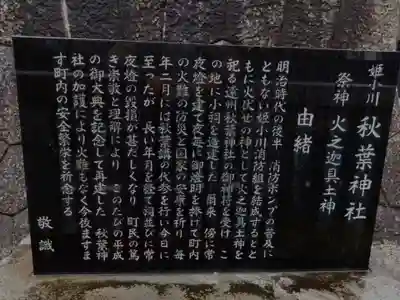 姫小川 秋葉神社
祭神 火之迦具土神
由緒
明治時代の後半 消防ポンプの普及に
ともない姫小川消防組を結成するとと
もに火伏せの神として火之迦具土神を
祀る遠州秋葉神社の御神符を受け こ
の地に小祠を造建した 爾来 傍に常
夜燈を建て夜毎に御燈明を捧げて町内
の火難の防災と国家の安泰を祈り 毎
年二月には秋葉講の代参を行い今日に
至ったが 長い年月を経て祠並びに常
夜燈の毀損が甚だしくなり 町民の篤
き崇敬と理解により このたびの平成
の御大典を記念して再建した 秋葉神
社の加護により火難もなく今後ますま
す町内の安全繁栄を祈念する
敬識